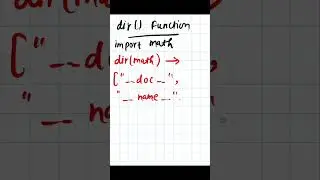 dir() Function
import math
dir(math) →
["__doc__",
"__name__".